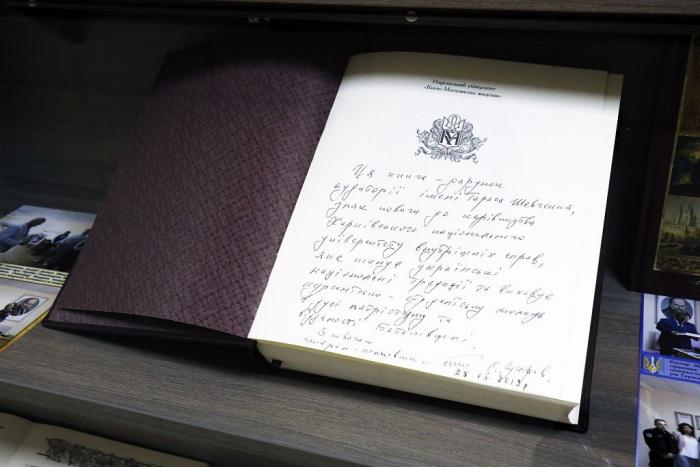 Національний університет
«Києво-Могилянська академія»
КМ
Ця книга – дарунок
аудиторії імені Тараса Шевченка,
знак поваги до керівництва
Харківського національного
університету внутрішніх справ,
яке шанує українські
національні традиції та виховує
курсантсько-студентську молодь
в дусі патріотизму та
відданості Батьківщині.
З повагою